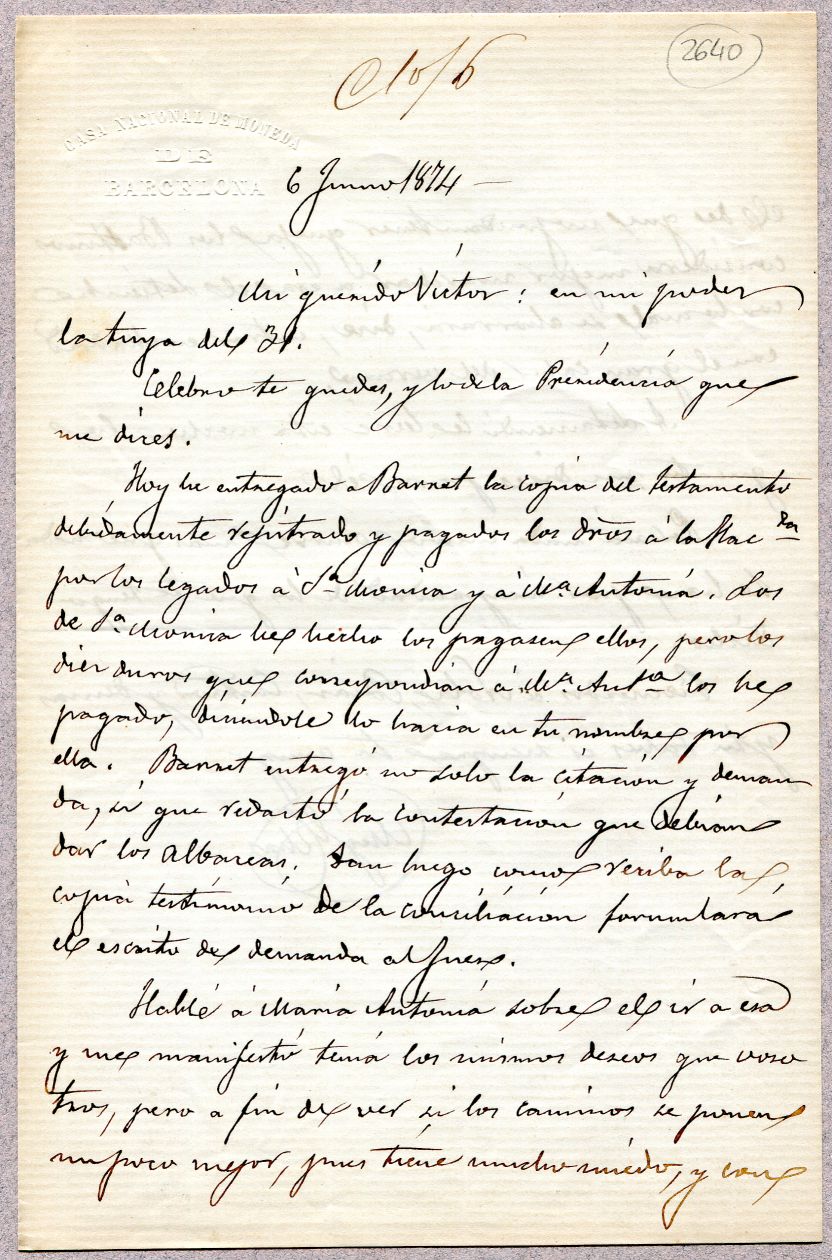 2640
C 10/6
CASA NACIONAL DE MONEDA
DE
BARCELONA
6 Junio 1874 —
Mi querido Victor: en mi poder
la tuya del 31.
Celebro te quedes, y lo de la Presidencia que
me dices.
Hoy he entregado a Barnet la copia del testamento
debidamente rejistrado y pagados los dros á la Hacda
por los legados á Sa Monica y á Ma Antonia. Los
de Sa Monica he hecho los pagasen ellos, pero los
diez duros que correspondian á Ma Anta los he
pagado, diciéndole lo hacia en tu nombre por
ella. Barnet entregó no solo la citación y deman
da, si que redactó la contestación que debian
dar los albaceas. Tan luego como reciba la
copia testimonio de la conciliación formulará
el escrito de demanda al Juez.
Hablé á Maria Antonia sobre el ir a esa
y me manifestó tenia los mismos deseos que voso
tros, pero a fin de ver si los caminos se ponen
un poco mejor, pues tiene mucho miedo, y con